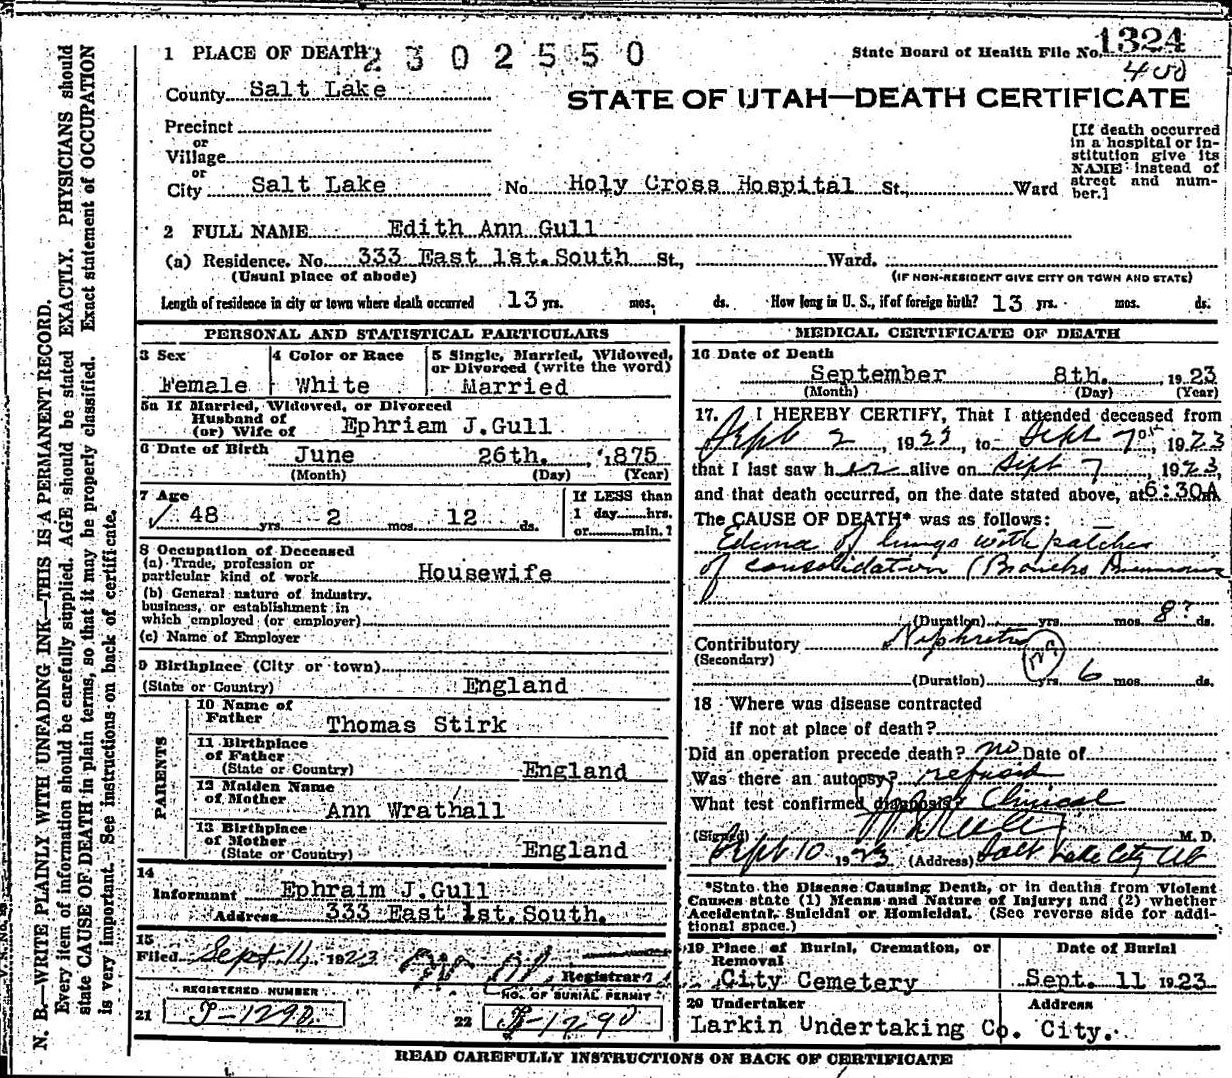 1 PLACE OF DEATH 2302550
State Board of Health File No. 1324
400
County Salt Lake
STATE OF UTAH—DEATH CERTIFICATE
Precinct
or
Village
or
City Salt Lake No. Holy Cross Hospital St., Ward
[If death occurred
in a hospital or in-
stitution give its
NAME instead of
street and num-
ber.]
2 FULL NAME Edith Ann Gull
(a) Residence. No. 333 East 1st. South St., Ward.
(Usual place of abode) (IF NON-RESIDENT GIVE CITY OR TOWN AND STATE)
Length of residence in city or town where death occurred 13 yrs. mos. ds. How long in U. S., if of foreign birth? 13 yrs. mos. ds.
PERSONAL AND STATISTICAL PARTICULARS
3 Sex
Female
4 Color or Race
White
5 Single, Married, Widowed,
or Divorced (write the word)
Married
5a If Married, Widowed, or Divorced
Husband of
(or) Wife of Ephriam J. Gull
6 Date of Birth June 26th. 1875
(Month) (Day) (Year)
7 Age
48 yrs. 2 mos. 12 ds.
If LESS than
1 day hrs.
or min.?
8 Occupation of Deceased
(a) Trade, profession or
particular kind of work Housewife
(b) General nature of industry,
business, or establishment in
which employed (or employer)
(c) Name of Employer
9 Birthplace (City or town)
(State or Country) England
PARENTS
10 Name of
Father Thomas Stirk
11 Birthplace
of Father
(State or Country) England
12 Maiden Name
of Mother Ann Wrathall
13 Birthplace
of Mother
(State or Country) England
14
Informant Ephraim J. Gull
Address 333 East 1st. South.
15
Filed Sept. 11, 1923 Registrar
REGISTERED NUMBER
21 J-1290
NO. OF BURIAL PERMIT
22 B-1290
MEDICAL CERTIFICATE OF DEATH
16 Date of Death
September 8th. , 1923
(Month) (Day) (Year)
17. I HEREBY CERTIFY, That I attended deceased from
Sept 2, 1923, to Sept 7, 1923
that I last saw her alive on Sept 7, 1923,
and that death occurred, on the date stated above, at 6:30A
The CAUSE OF DEATH* was as follows:
Edema of lungs with patches
of consolidation (Broncho Pneumonia
(Duration) yrs. mos. 8? ds.
Contributory Nephritis
(Secondary)
(Duration) yrs. 6 mos. ds.
18 Where was disease contracted
if not at place of death?
Did an operation precede death? no Date of
Was there an autopsy? refused
What test confirmed diagnosis? Clinical
(Signed) M. D.
Sept 10 1923 (Address) Salt Lake City Ut
*State the Disease Causing Death, or in deaths from Violent
Causes state (1) Means and Nature of Injury; and (2) whether
Accidental, Suicidal or Homicidal. (See reverse side for addi-
tional space.)
19 Place of Burial, Cremation, or
Removal
City Cemetery
Date of Burial
Sept. 11 1923
20 Undertaker Address
Larkin Undertaking Co. City.
READ CAREFULLY INSTRUCTIONS ON BACK OF CERTIFICATE
N. B.—WRITE PLAINLY WITH UNFADING INK—THIS IS A PERMANENT RECORD.
Every item of information should be carefully supplied. AGE should be stated EXACTLY. PHYSICIANS should
state CAUSE OF DEATH in plain terms, so that it may be properly classified. Exact statement of OCCUPATION
is very important. See instructions on back of certificate.